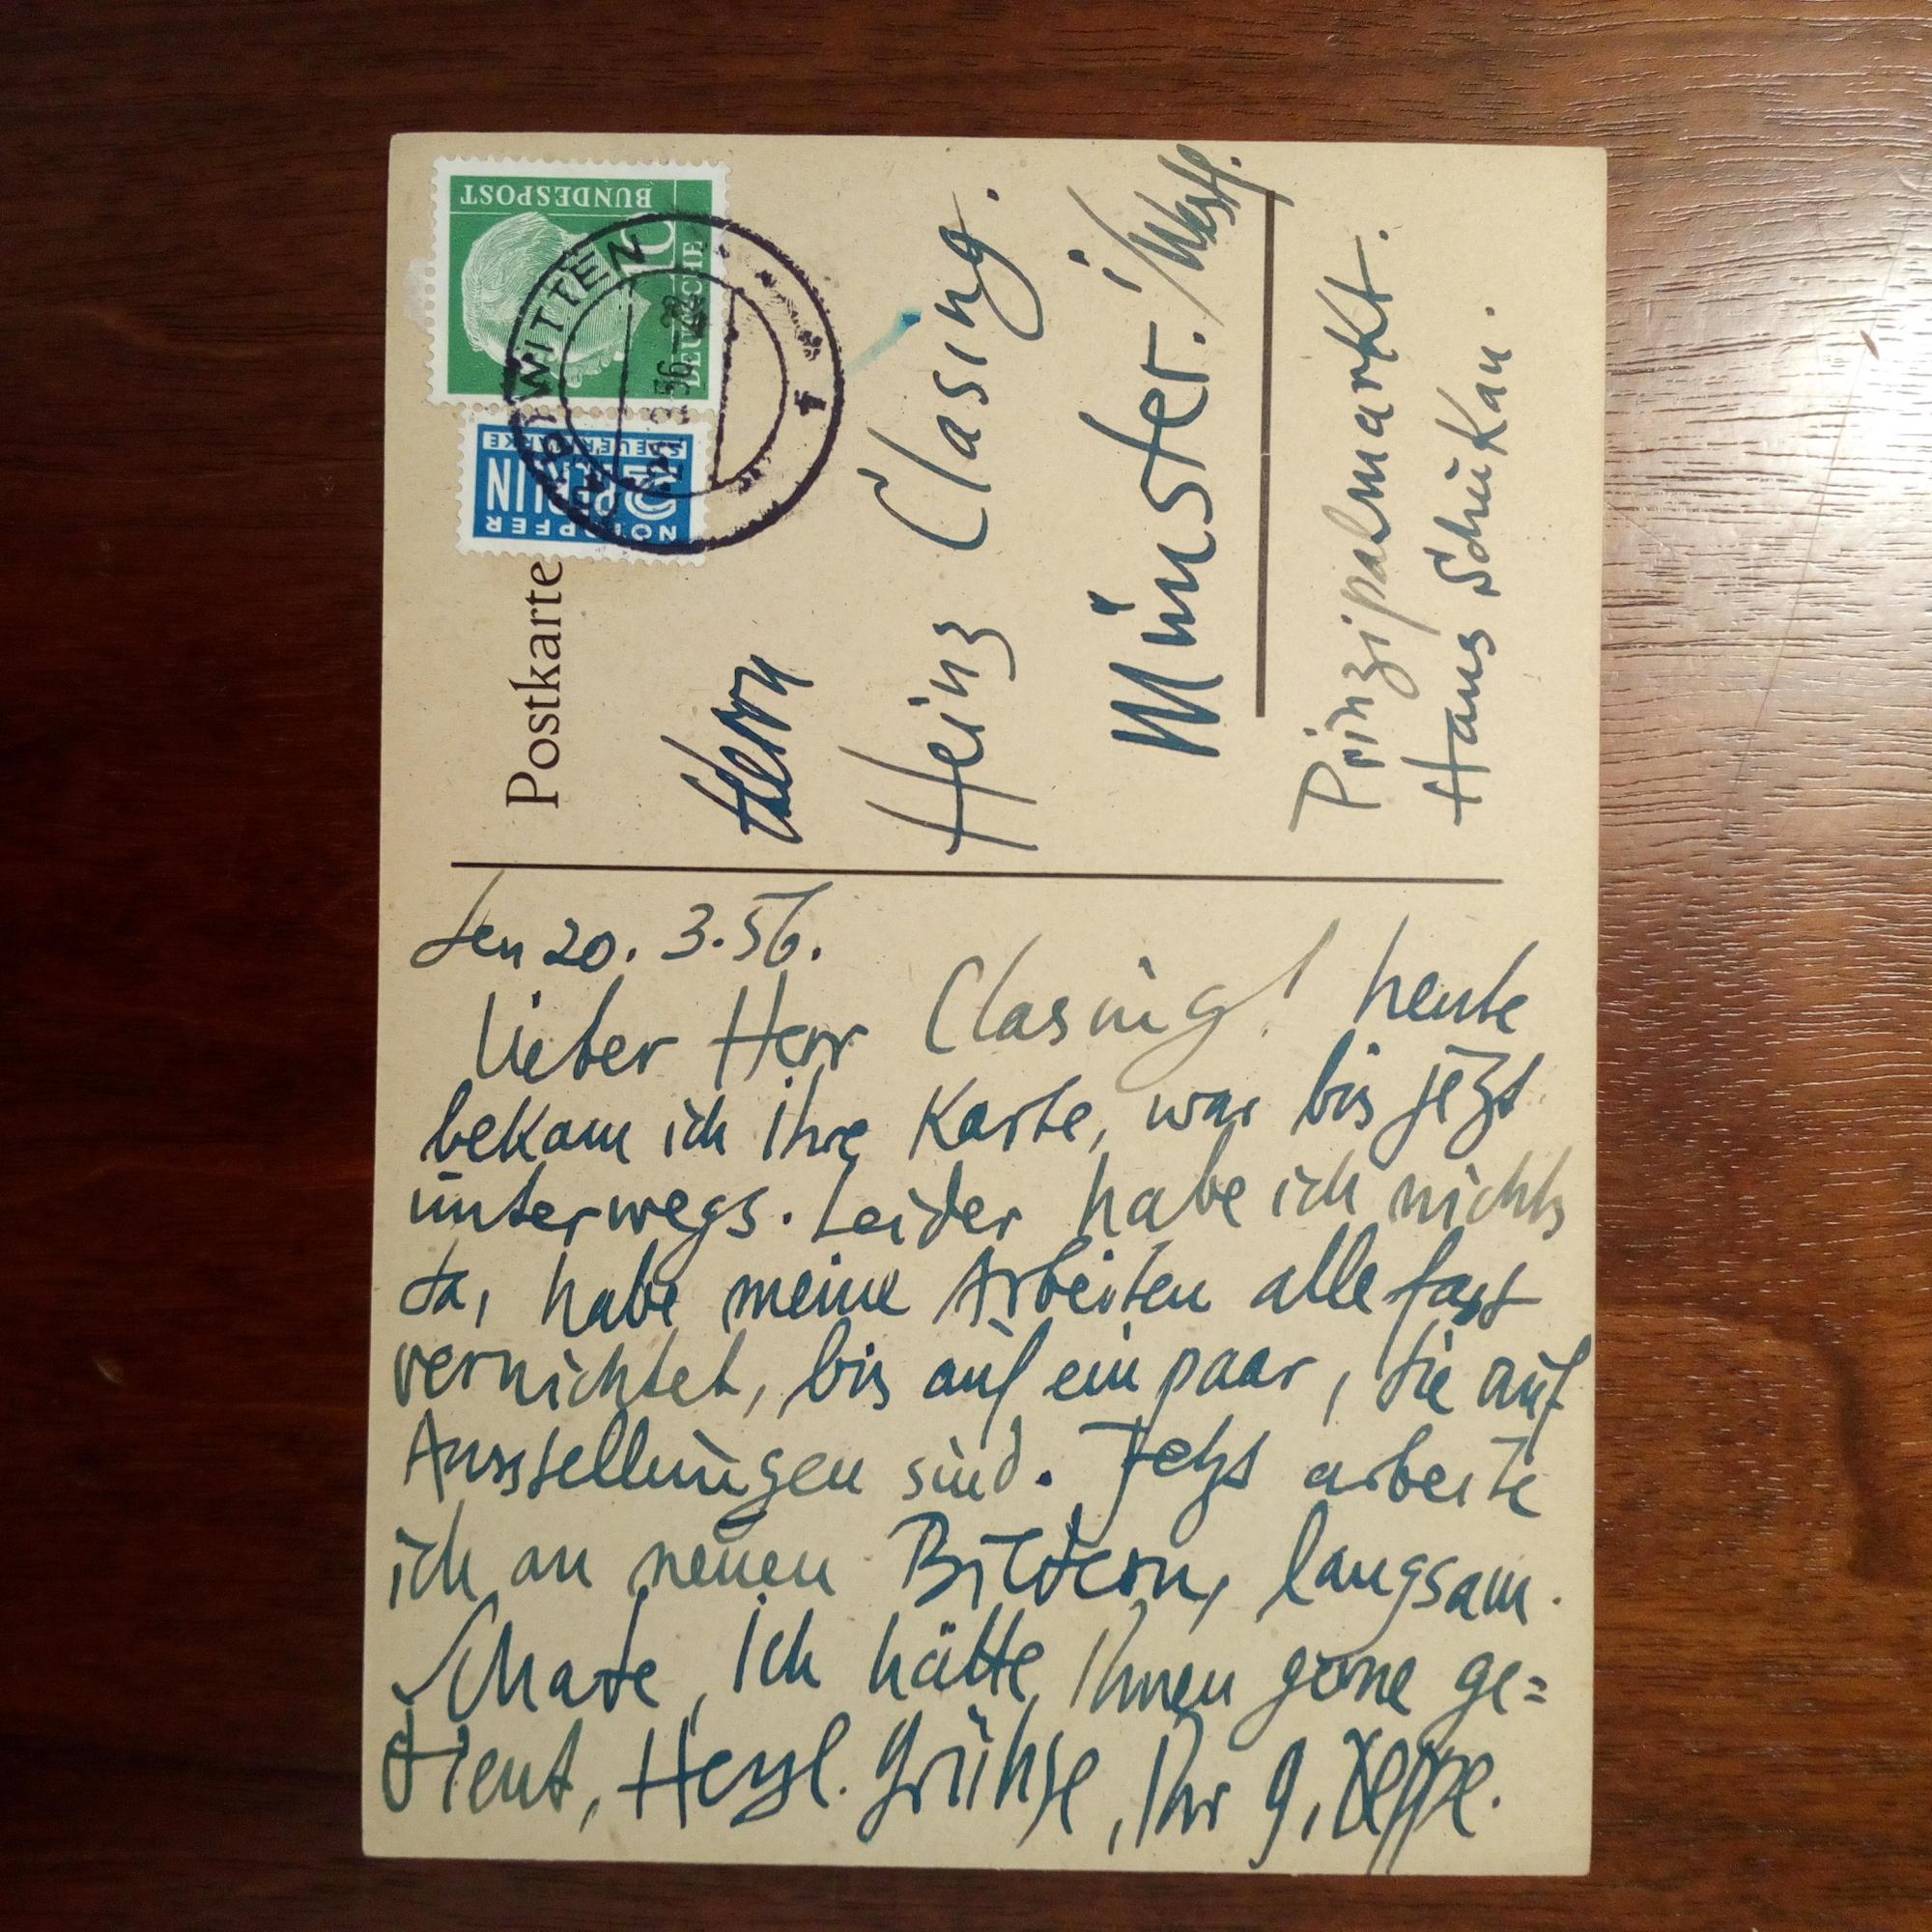 Postkarte
DEUTSCHE
BUNDESPOST
10
NOTOPFER
2 BERLIN
STEUERMARKE
WITTEN
Herrn
Heinz Clasing.
Münster. / Westf.
Prinzipalmarkt.
Haus Schükan.
den 20. 3. 56.
Lieber Herr Clasing! heute
bekam ich ihre Karte, war bis jezt
unterwegs. Leider habe ich nichts
da, habe meine Arbeiten alle fast
vernichtet, bis auf ein paar, die auf
Ausstellungen sind. Jetzt arbeite
ich an neuen Bildern, langsam.
Schade, ich hätte Ihnen gerne ge=
dient, Herzl. Grühse, Ihr G. Deppe.